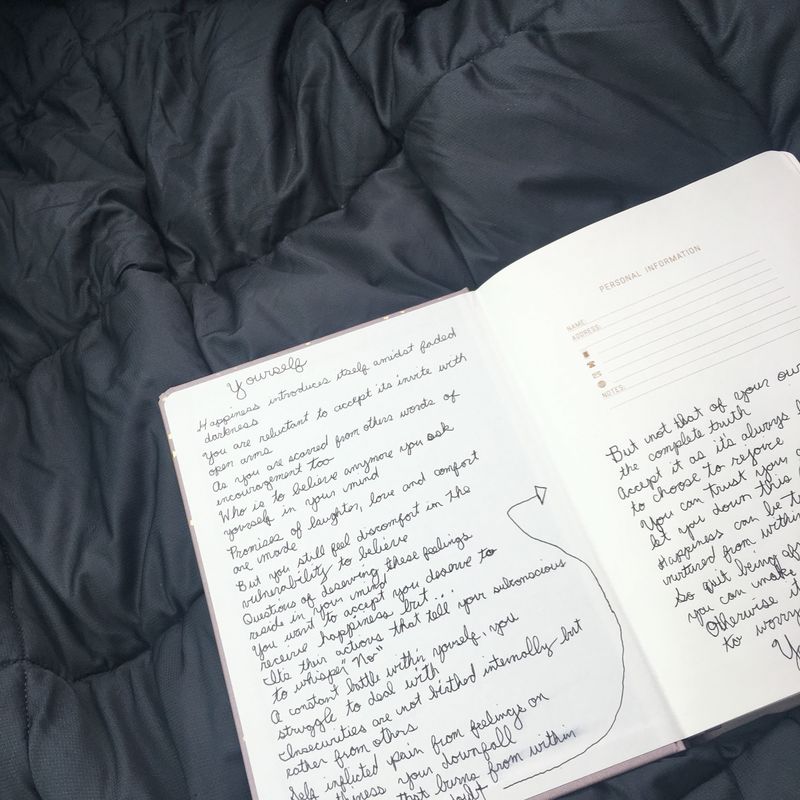 Yourself
Happiness introduces itself amidst faded
darkness
You are reluctant to accept its invite with
open arms
As you are scarred from others words of
encouragement too
Who is to believe anymore you ask
yourself in your mind
Promises of laughter, love and comfort
are made
But you still feel discomfort in the
vulnerability to believe
Questions of deserving these feelings
reside in your mind
You want to accept you deserve to
receive happiness but...
It's their actions that tell your subconscious
to whisper "No"
A constant battle within yourself, you
struggle to deal with
Insecurities are not birthed internally but
rather from others
Self inflicted pain from feelings on
your downfall
that burns from within
PERSONAL INFORMATION
NAME:
ADDRESS:
NOTES:
But not that of your own
the complete truth
Accept it as it's always
to choose to rejoice
You can trust your
let you down this
Happiness can be
nurtured from within
So quit being
you can make
Otherwise
to worry